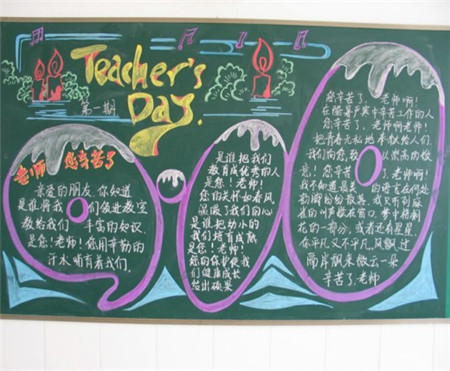 Teacher's
Day.
第一期
老师 您辛苦了
亲爱的朋友 你知道
是谁将我们领进教室
教给我们 丰富的知识
是您！老师！您用辛勤的
汗水哺育着我们.
是谁把我们
教育成优秀的人
是您！老师！
您的关怀如春风
温暖了我们的心
是谁把幼小的
我们培育成熟
是您！老师！
您的保护使我
们健康成长
结出硕果
您辛苦了.老师啊！
在酷暑严寒中辛苦工作的人
您辛苦了.老师啊老师！
把青春无私地奉献给人们.
我们向您致以崇高的敬
意！您辛苦了.老师啊！
我不知道最美的语言在何处
花的一春分, 或者还有星星.
在平凡又不平凡
高岸飘来微云一朵
辛苦了.老师